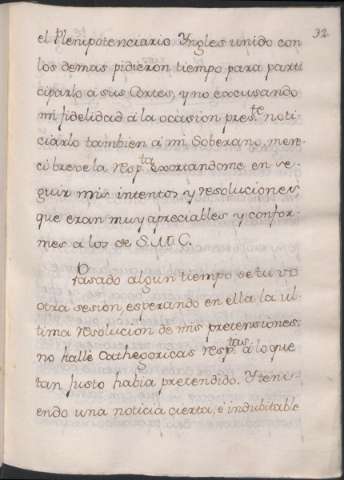 32
el Plenipotenciario Yngles unido con
los demas pidieron tiempo para parti
ciparlo a sus Cortes, y no excusando
mi fidelidad á la ocasion pres.te noti
ciarlo tambien a mi Soberano, mere
cí breve la resp.ta exortandome en se
guir mis intentos y resoluciones
que eran muy apreciables y confor
mes a los de S.M.C.
Pasado algun tiempo se tuvo
otra sesion, esperando en ella la ul
tima resolucion de mis pretensiones:
no hallè Cathegoricas resp.tas à lo que
tan justo habia pretendido. Y teni
endo una noticia cierta, e indubitable